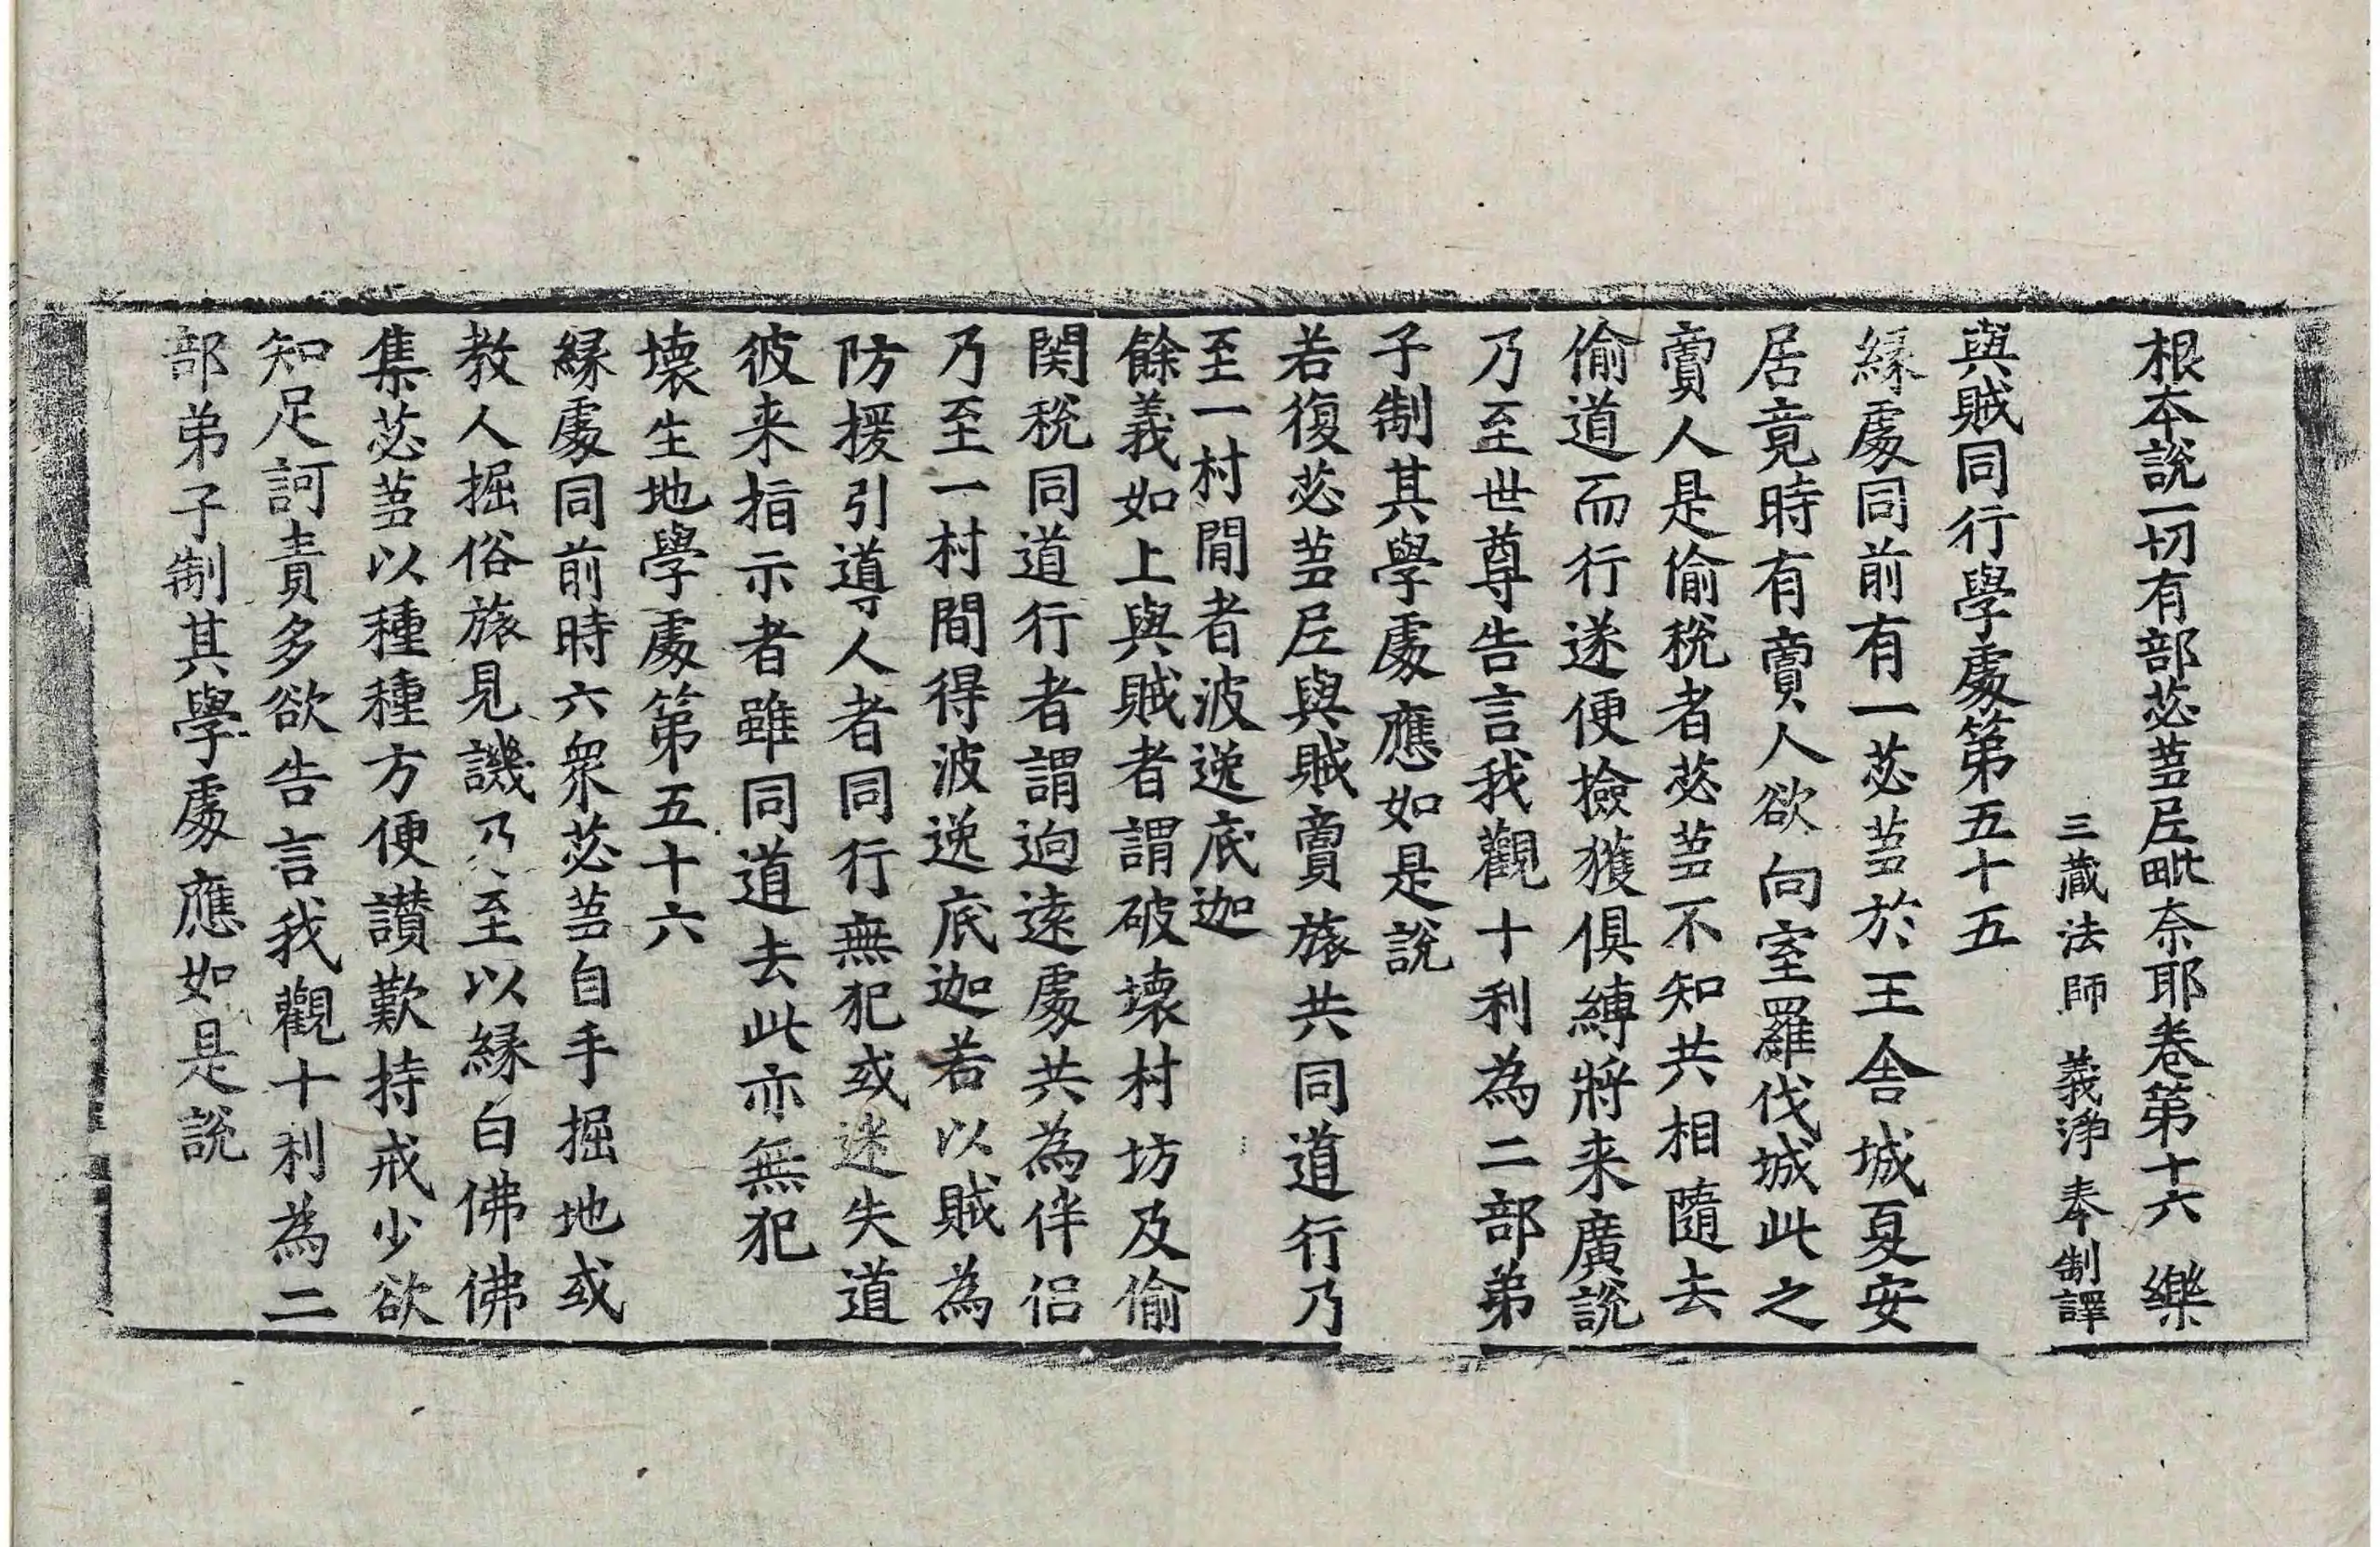 根本說一切有部苾蒭尼毗奈耶卷第十六 樂
三藏法師 義淨 奉制譯
與賊同行學處第五十五
緣處同前有一苾蒭於王舍城夏安
居竟時有賣人欲向室羅伐城此之
賣人是偷稅者苾蒭不知共相隨去
偷道而行遂便撿獲俱縛將来廣說
乃至世尊告言我觀十利為二部弟
子制其學處應如是說
若復苾蒭尼與賊賣旅共同道行乃
至一村間者波逸底迦
餘義如上與賊者謂破壞村坊及偷
関稅同道行者謂逈遠處共為伴侣
乃至一村間得波逸底迦若以賊為
防援引導人者同行無犯或迷失道
彼来指示者雖同道去此亦無犯
壞生地學處第五十六
緣處同前時六眾苾蒭自手掘地或
教人掘俗旅見譏乃至以緣白佛佛
集苾蒭以種種方便讃歎持戒少欲
知足訶責多欲告言我觀十利為二
部弟子制其學處應如是說